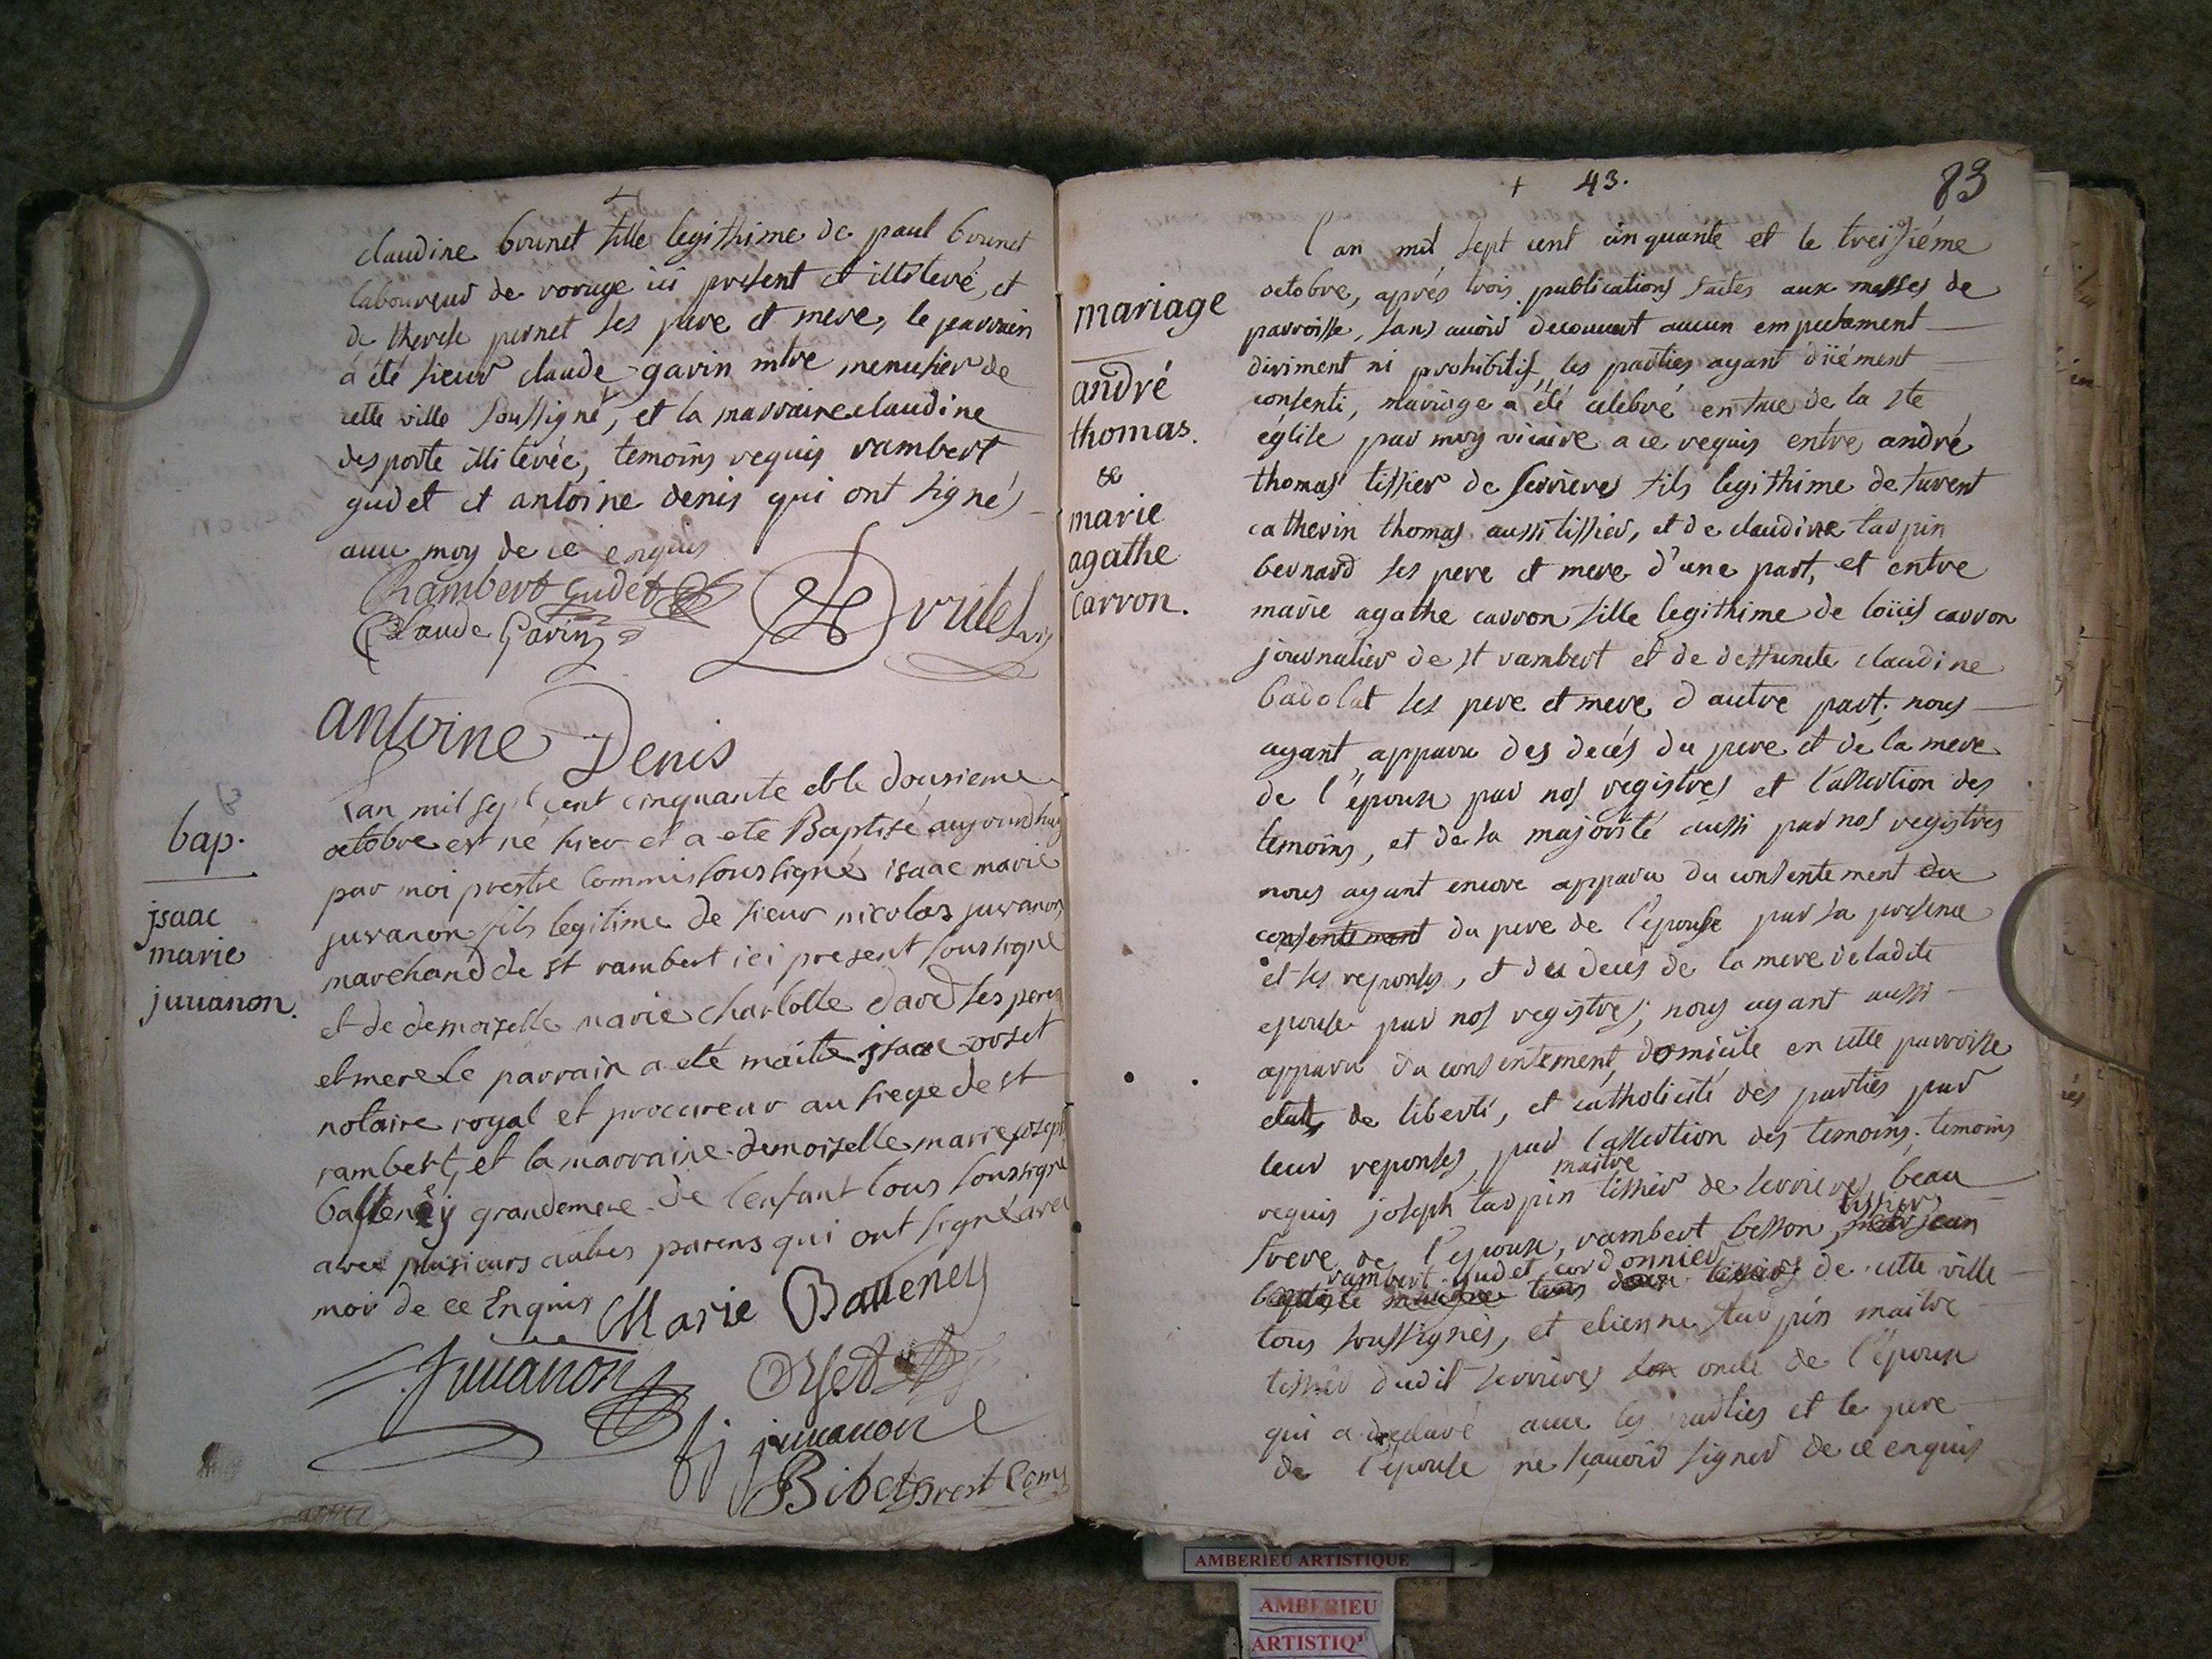 claudine brunet fille legithime de paul brunet
laboureur de voruge ici present et illiteré, et
de therese pernet ses pere et mere, le parrain
á été sieur claude gavin mtre menusier de
cette ville soussigné, et la marraine claudine
desporte illiterée, temoins requis rambert
gudet et antoine denis qui ont signés
avec moy de ce enquis
Rambert Gudet
Claude Gavin
antoine Denis
bap.
jsaac
marie
juuanon.
Lan mil sept cent cinquante et le dousieme
octobre est né hier et a ete Baptisé aujourdhuy
par moi prestre Commis soussigné isaac marie
juvanon fils legitime de sieur nicolas juvanon
marchand de st rambert ici present soussigné
et de demoiselle marie charlotte david ses pere
et mere Le parrain a eté maitre jsaac orset
notaire royal et procureur au siege de st
rambert, et la marraine demoiselle marie joseph
grandemere de lenfant tous soussigné
avec plusieurs autres parens qui ont signé avec
moi de ce Enquis Marie Balleney
Juuanon Orset
fj juuanon
Bibet prest Comis
+ 43.
83
mariage
andré
thomas.
&
marie
agathe
carron.
l'an mil sept cent cinquante et le treisiéme
octobre, aprés trois publications faites aux messes de
parroisse, sans auoir decouuert aucun empechement
diriment ni prohibitif, les parties ayant düément
consenti, mariage a été celebré en face de la ste
église par moy vicaire a ce requis entre andré
thomas tissier de serrieres fils legithime de furent
catherin thomas aussi tissier, et de claudine taupin
bernard ses pere et mere d'une part, et entre
marie agathe carron fille legithime de loüis carron
journalier de st rambert et de deffuncte claudine
badolat ses pere et mere d autre part; nous
ayant apparu des decés du pere et de la mere
de l'époux par nos registres et l'assertion des
temoins, et de sa majorité aussi par nos registres
nous ayant encore apparu du consentement du
consentement du pere de l'epouse par sa presence
et ses reponses, et du decés de la mere de ladite
epouse par nos registres; nous ayant aussi
apparu du consentement, domicile en cette parroisse
etat de liberté, et catholicité des parties par
leur reponses, par l'assertion des temoins; temoins
maitre
requis joseph taupin tissier de serrieres, beau
tissier
frere de l'epoux, rambert besson, jean
rambert gudet cordonnier
baptiste de cette ville
tous soussignés, et etienne taupin maitre
tissier dudit serrieres oncle de l'époux
qui a declaré avec les parties et le pere
de l'epouse ne sçauoir signer de ce enquis
AMBERIEU ARTISTIQUE
AMBERIEU
ARTISTIQ